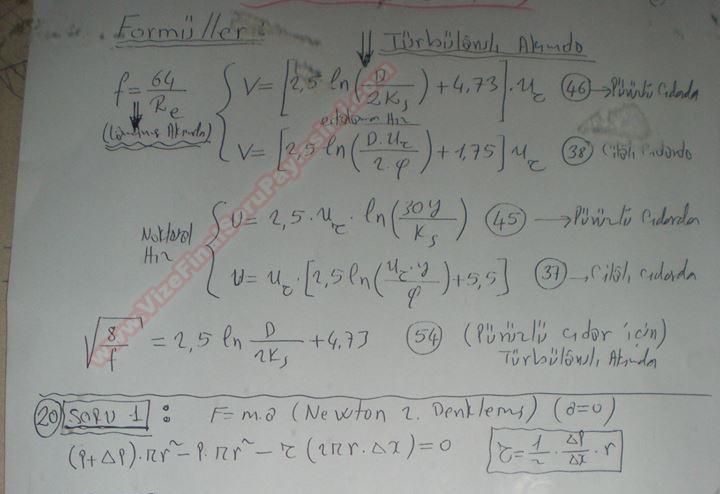 Formüller:
Türbülanslı Akımda
f = 64/Re
(Laminer Akımda)
V = [2,5 ln(D/2Ks) + 4,73] · uτ (46) → Pürüzlü Cidarda
ortalama Hız
V = [2,5 ln(D·uτ/2·φ) + 1,75] uτ (38) Cilalı Cidarda
Noktasal Hız
U = 2,5 · uτ · ln(30y/Ks) (45) → Pürüzlü Cidarda
u = uτ · [2,5 ln(uτ·y/φ) + 5,5] (37) → Cilalı cidarda
√(8/f) = 2,5 ln D/2Ks + 4,73 (54) (Pürüzlü cidar için)
Türbülanslı Akımda
(20) SORU 1 : F = m.a (Newton 2. Denklemi) (a=0)
(P+ΔP)·πr² − P·πr² − τ(2πr·Δx) = 0 τ = 1/2 · ΔP/Δx · r
www.VizeFinalSoruPaylasimi.com